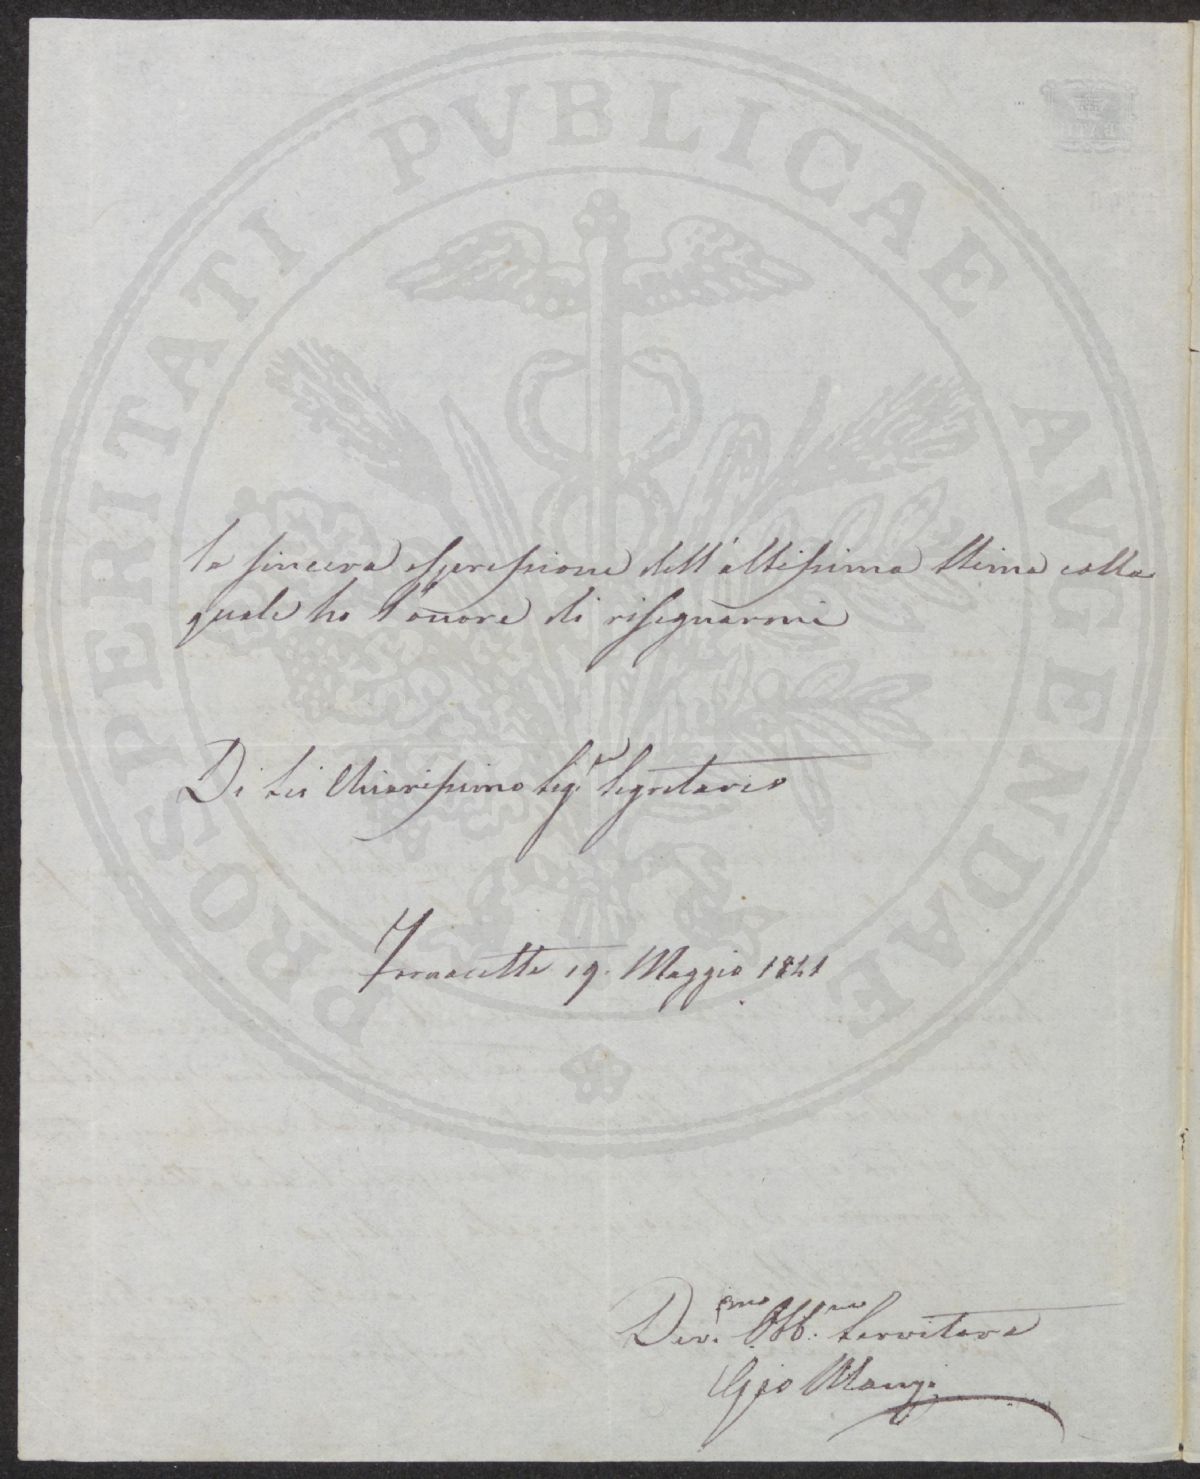 PROSPERITATI PVBLICAE AVGENDAE
la sincera espressione dell'altissima stima colla
quale ho l'onore di rissegnarmi
Di Lei Chiarissimo Sig.re Segretario
Fornacette 19. Maggio 1841
Dev.smo Obb.mo Servitore
Gio